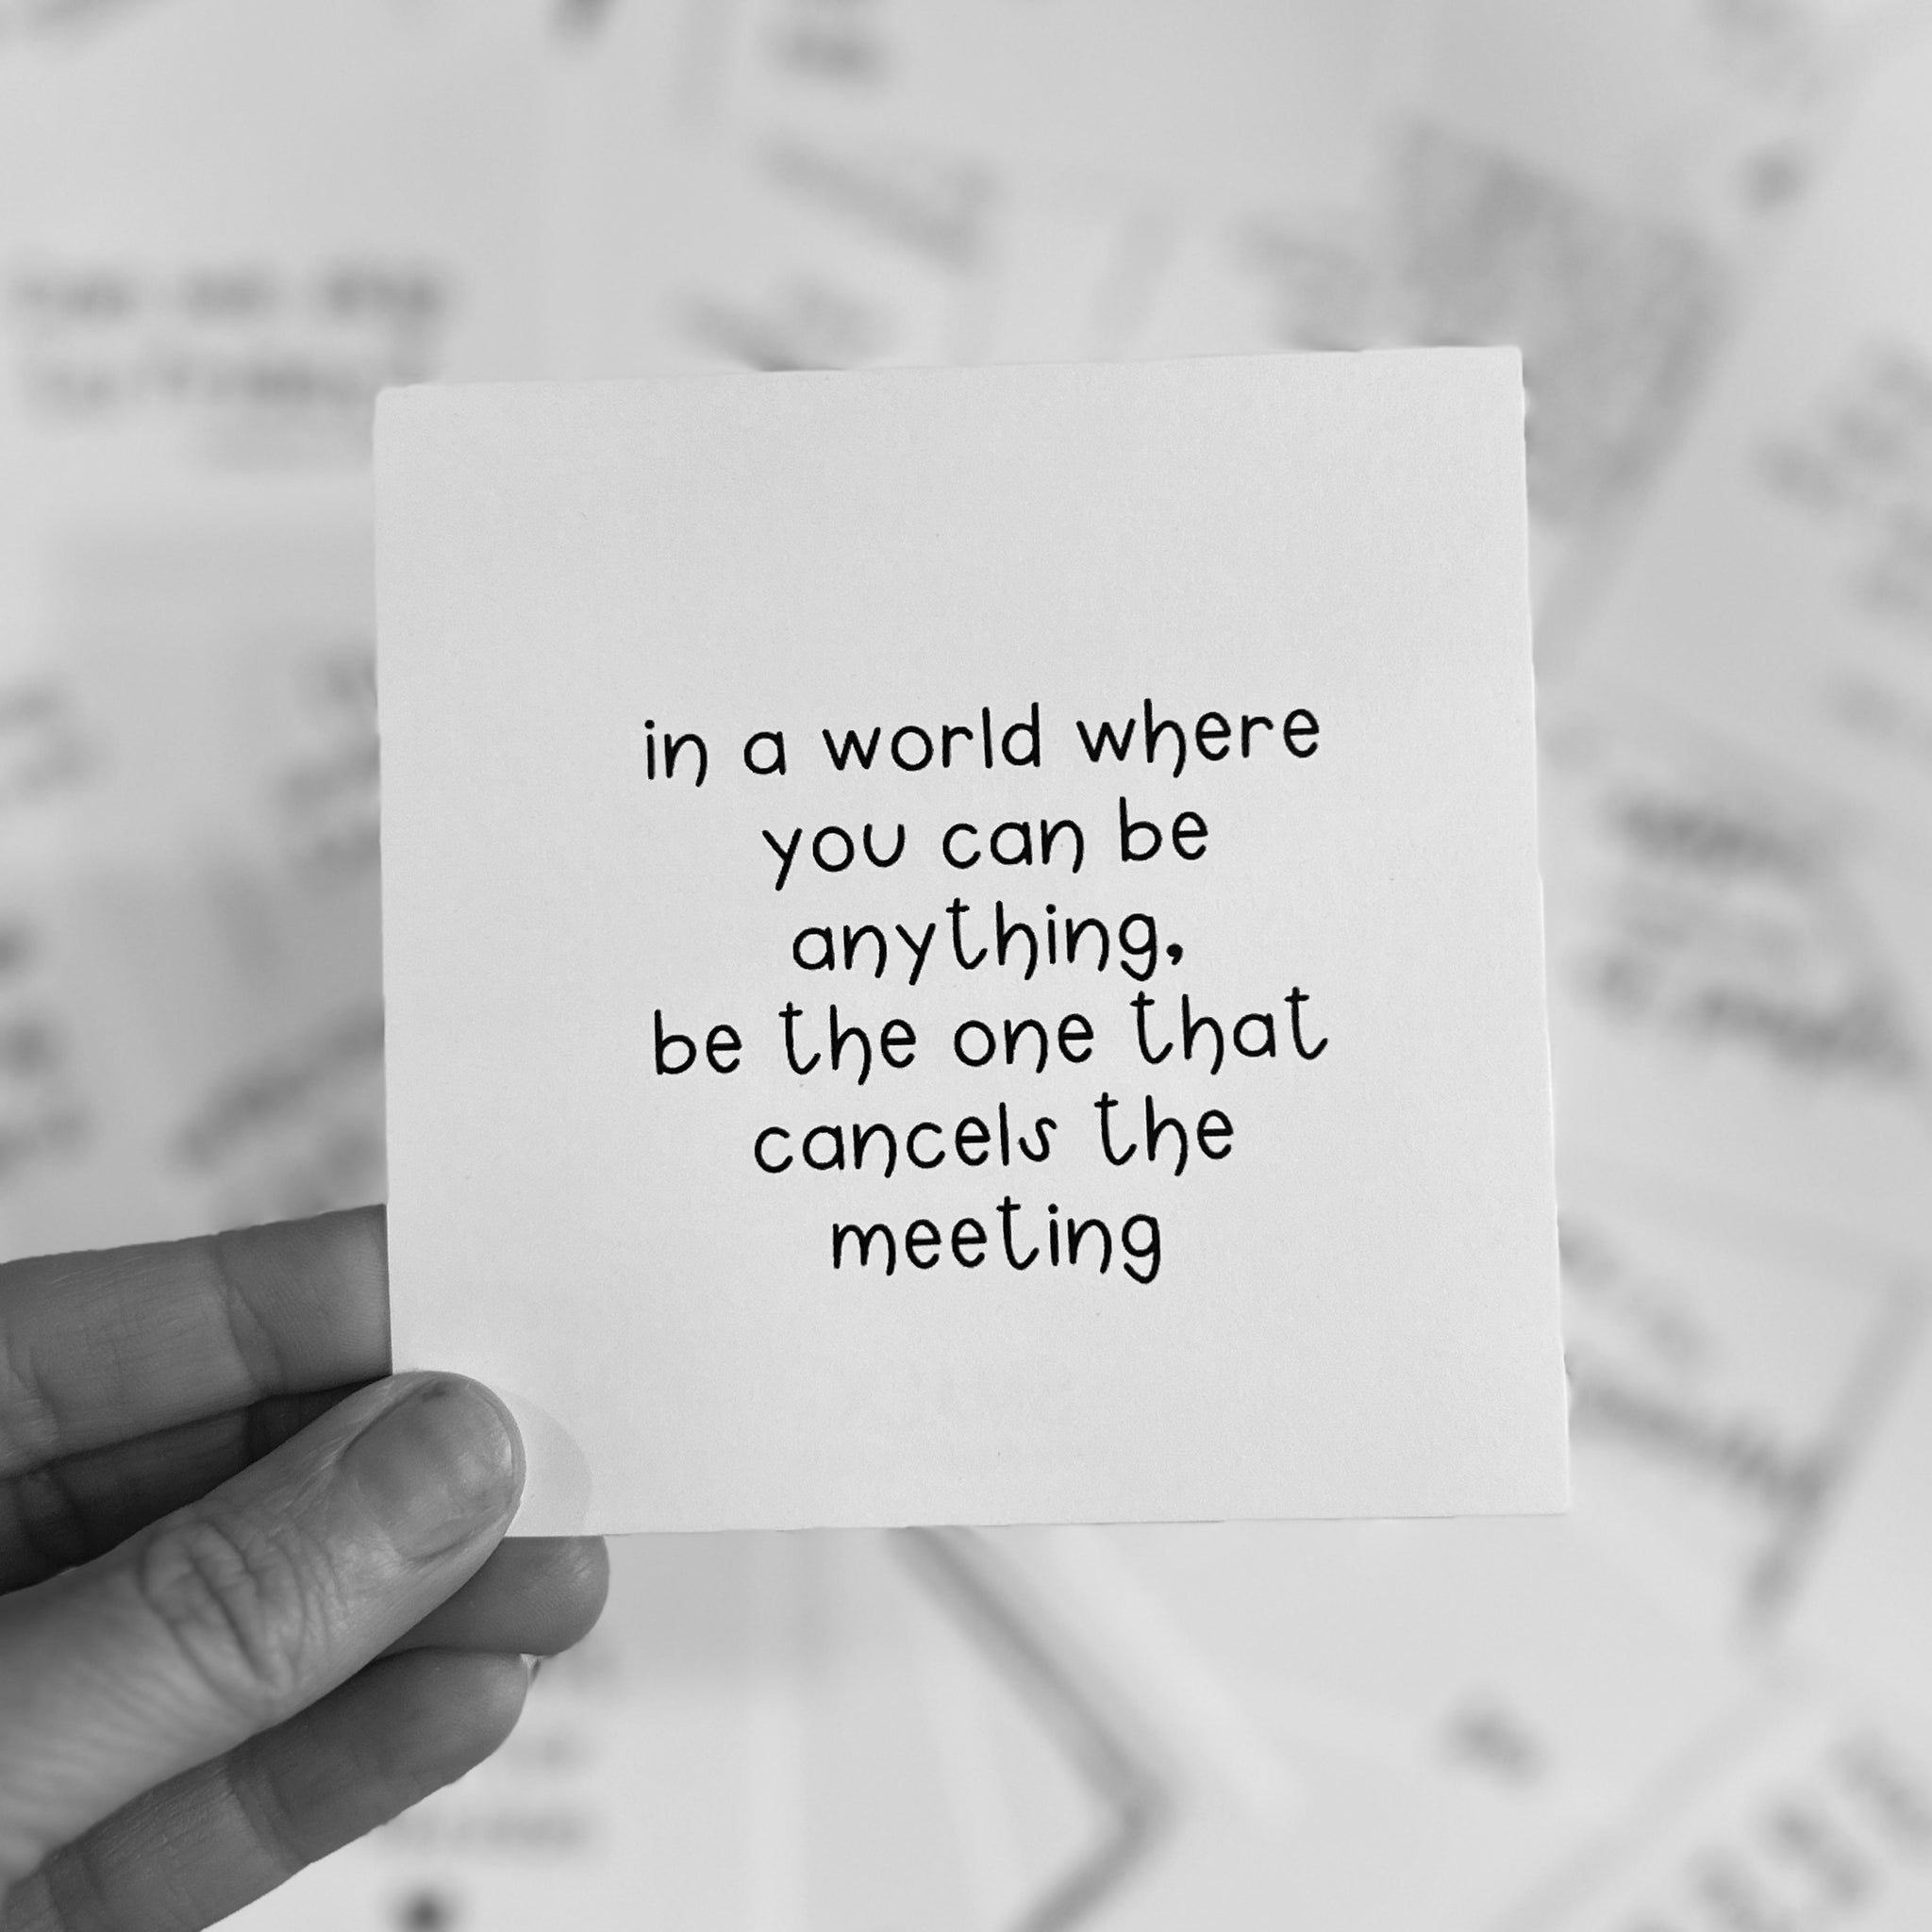 in a world where
you can be
anything,
be the one that
cancels the
meeting